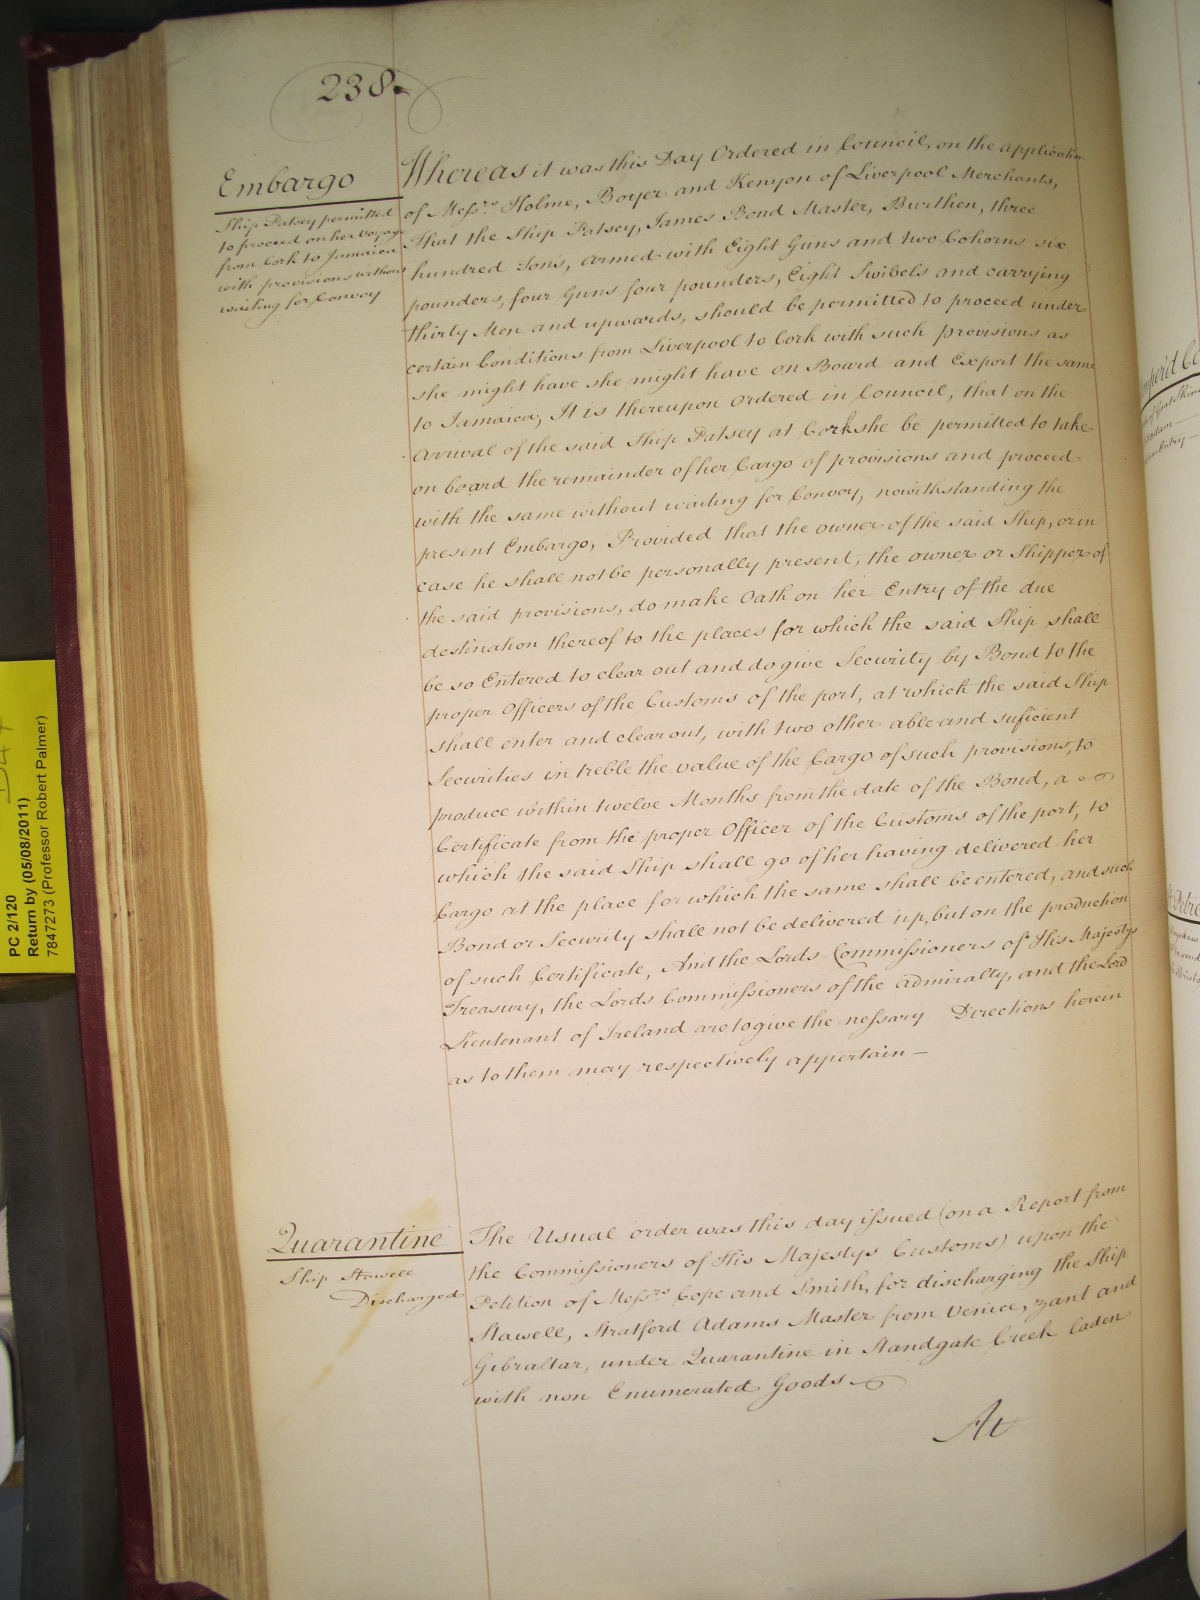 238
Embargo
Ship Patsey permitted
to proceed on her Voyage
from Cork to Jamaica
with provisions without
waiting for Convoy
Whereas it was this Day Ordered in Council, on the application
of Messrs. Holme, Boyer and Kenyon of Liverpool Merchants,
That the Ship Patsey, James Bond Master, Burthen, three
hundred Tons, armed with Eight Guns and two Cohorns six
pounders, four Guns four pounders, Eight Swibels and carrying
thirty Men and upwards, should be permitted to proceed under
certain Conditions from Liverpool to Cork with such provisions as
she might have she might have on Board and Export the same
to Jamaica; It is thereupon Ordered in Council, that on the
Arrival of the said Ship Patsey at Cork she be permitted to take
on board the remainder of her Cargo of provisions and proceed
with the same without waiting for Convoy, nowithstanding the
present Embargo, Provided that the owner of the said Ship, or in
case he shall not be personally present, the owner or Shipper of
the said provisions, do make Oath on her Entry of the due
destination thereof to the places for which the said Ship shall
be so Entered to clear out and do give Security by Bond to the
proper Officers of the Customs of the port, at which the said Ship
shall enter and clear out, with two other able and suficient
Securities in treble the value of the Cargo of such provisions, to
produce within twelve Months from the date of the Bond, a
Certificate from the proper Officer of the Customs of the port, to
which the said Ship shall go of her having delivered her
Cargo at the place for which the same shall be entered, and such
Bond or Security shall not be delivered up, but on the production
of such Certificate, And the Lords Commissioners of His Majestys
Treasury, the Lords Commissioners of the Admiralty, and the Lord
Lieutenant of Ireland are to give the nessary Directions herein
as to them may respectively appertain —
Quarantine
Ship Stawell
Discharged
The Usual order was this day issued (on a Report from
the Commissioners of His Majestys Customs) upon the
Petition of Messrs. Cope and Smith, for discharging the Ship
Stawell, Stratford Adams Master from Venice, Zant and
Gibraltar, under Quarantine in Standgate Creek laden
with non Enumerated Goods
At
PC 2/120
Return by (05/08/2011)
7847273 (Professor Robert Palmer)